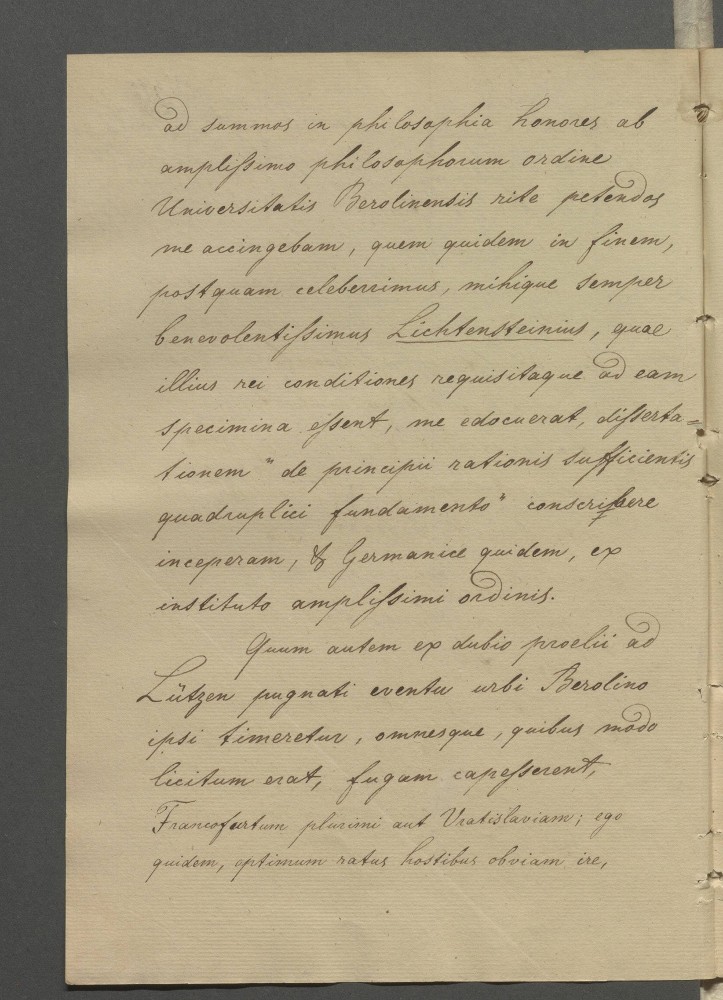 ad summos in philosophia honores ab
ampliſsimo philosophorum ordine
Universitatis Berolinensis rite petendos
me accingebam, quem quidem in finem,
postquam celeberrimus, mihique semper
benevolentiſsimus Lichtensteinius, quae
illius rei conditiones requisitaque ad eam
specimina eſsent, me edocuerat, diſserta=
tionem "de principii rationis sufficientis
quadruplici fundamento" conscribere
inceperam, & Germanice quidem, ex
instituto ampliſsimi ordinis.
Quum autem ex dubio proelii ad
Lützen pugnati eventu urbi Berolino
ipsi timeretur, omnesque, quibus modo
licitum erat, fugam capeſserent,
Francofurtum plurimi aut Vratislaviam; ego
quidem, optimum ratus hostibus obviam ire,